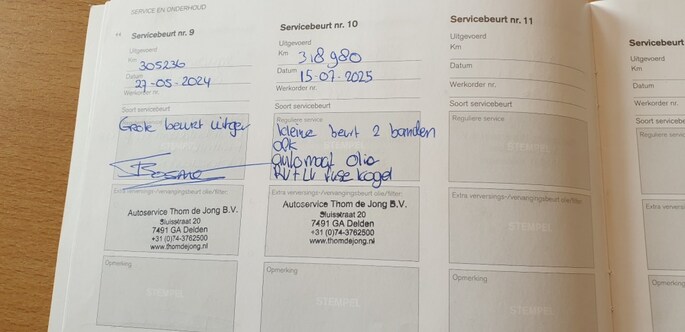 SERVICE EN ONDERHOUD
Servicebeurt nr. 9
Uitgevoerd
Km 305236
Datum 27-05-2024
Werkorder nr.
Soort servicebeurt
Grote beurt uitgev
Extra verversings-/vervangingsbeurt olie/filter:
Autoservice Thom de Jong B.V.
Sluisstraat 20
7491 GA Delden
+31 (0)74-3762500
www.thomdejong.nl
Opmerking
Servicebeurt nr. 10
Uitgevoerd
Km 318980
Datum 15-07-2025
Werkorder nr.
Soort servicebeurt
Reguliere service
kleine beurt 2 banden
apk
automaat olie
RV+LV fusekogel
Extra verversings-/vervangingsbeurt olie/filter:
Autoservice Thom de Jong B.V.
Sluisstraat 20
7491 GA Delden
+31 (0)74-3762500
www.thomdejong.nl
Opmerking
STEMPEL
Servicebeurt nr. 11
Uitgevoerd
Km
Datum
Werkorder nr.
Soort servicebeurt
Reguliere service
STEMPEL
Extra verversings-/vervangingsbeurt olie/filter:
STEMPEL
Opmerking
STEMPEL
Servicebeurt
Uitgevoerd
Km
Datum
Werkorder nr.
Soort servicebeurt
Reguliere service
Extra verversings-/ve
Opmerking